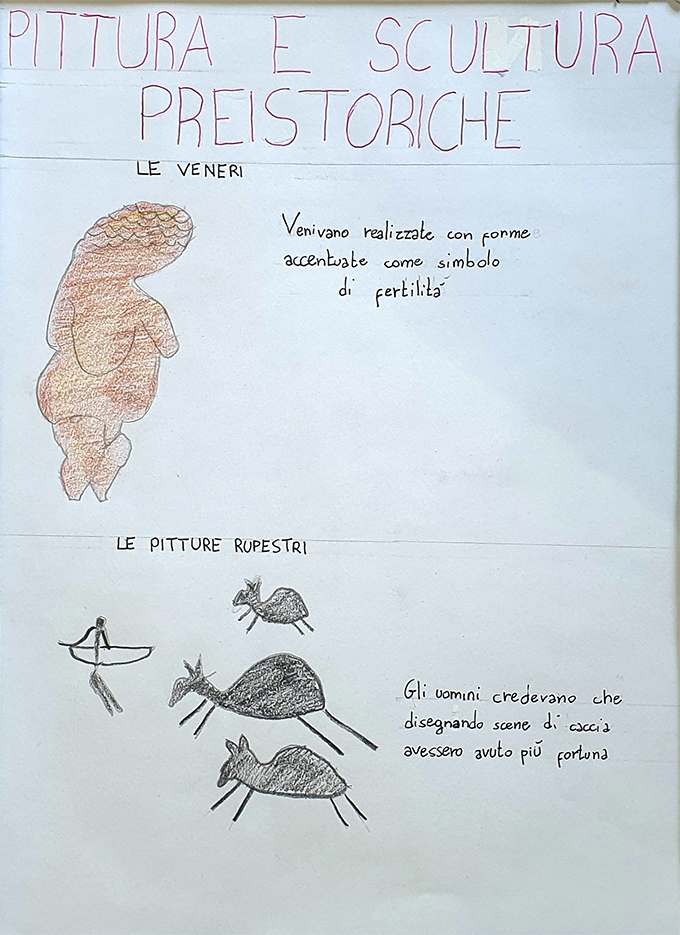 PITTURA E SCULTURA
PREISTORICHE
LE VENERI
Venivano realizzate con forme
accentuate come simbolo
di fertilità
LE PITTURE RUPESTRI
Gli uomini credevano che
disegnando scene di caccia
avessero avuto più fortuna